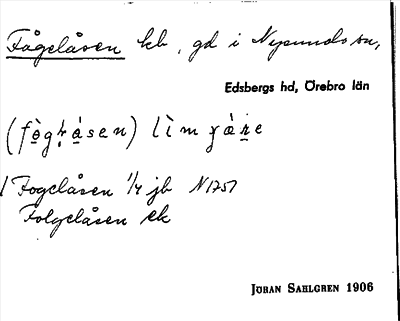 Fågelåsen kb, gd i Nysunds sn,
Edsbergs hd, Örebro län
(fò̱gḷá̱sen) lìmɣà̱ṉe
Fogelåsen 1/4 jb N 1751
Folgelåsen ek
JÖRAN SAHLGREN 1906